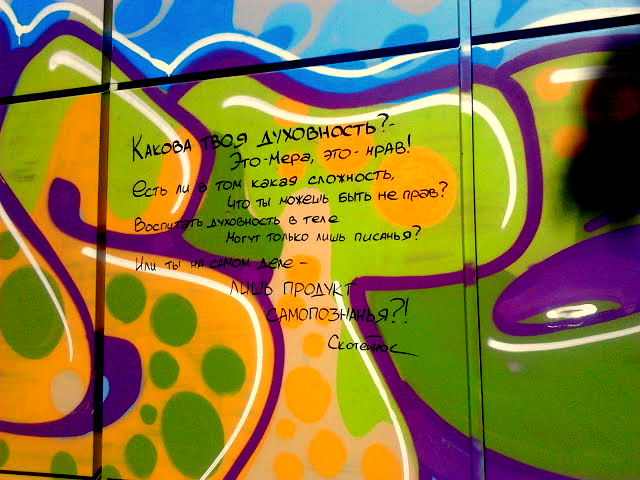 Какова твоя духовность?-
Это-мера, это-нрав!
Есть ли в том какая сложность,
Что ты можешь быть не прав?
Воспитать духовность в теле
Могут только лишь писанья?
Или ты на самом деле –
лишь продукт
самопознанья?!
Скотейнос